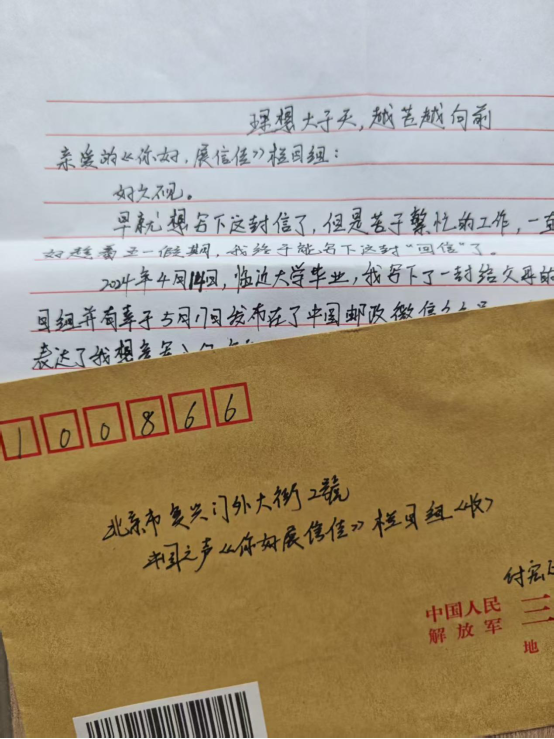 理想大于天，越苦越向前
亲爱的《你好，展信佳》栏目组：
好久不见。
早就想写下这封信了，但是苦于繁忙的工作，一直
好趁着五一假期，我终于能写下这封“回信”了。
2024年4月14日，临近大学毕业，我写下了一封给父母的
目组并有幸于5月17日发布在了中国邮政微信公众号
表达了我想
100866
北京市复兴门外大街2號
中国之声《你好展信佳》栏目组<收>
付宏
中国人民
解放军
三
地